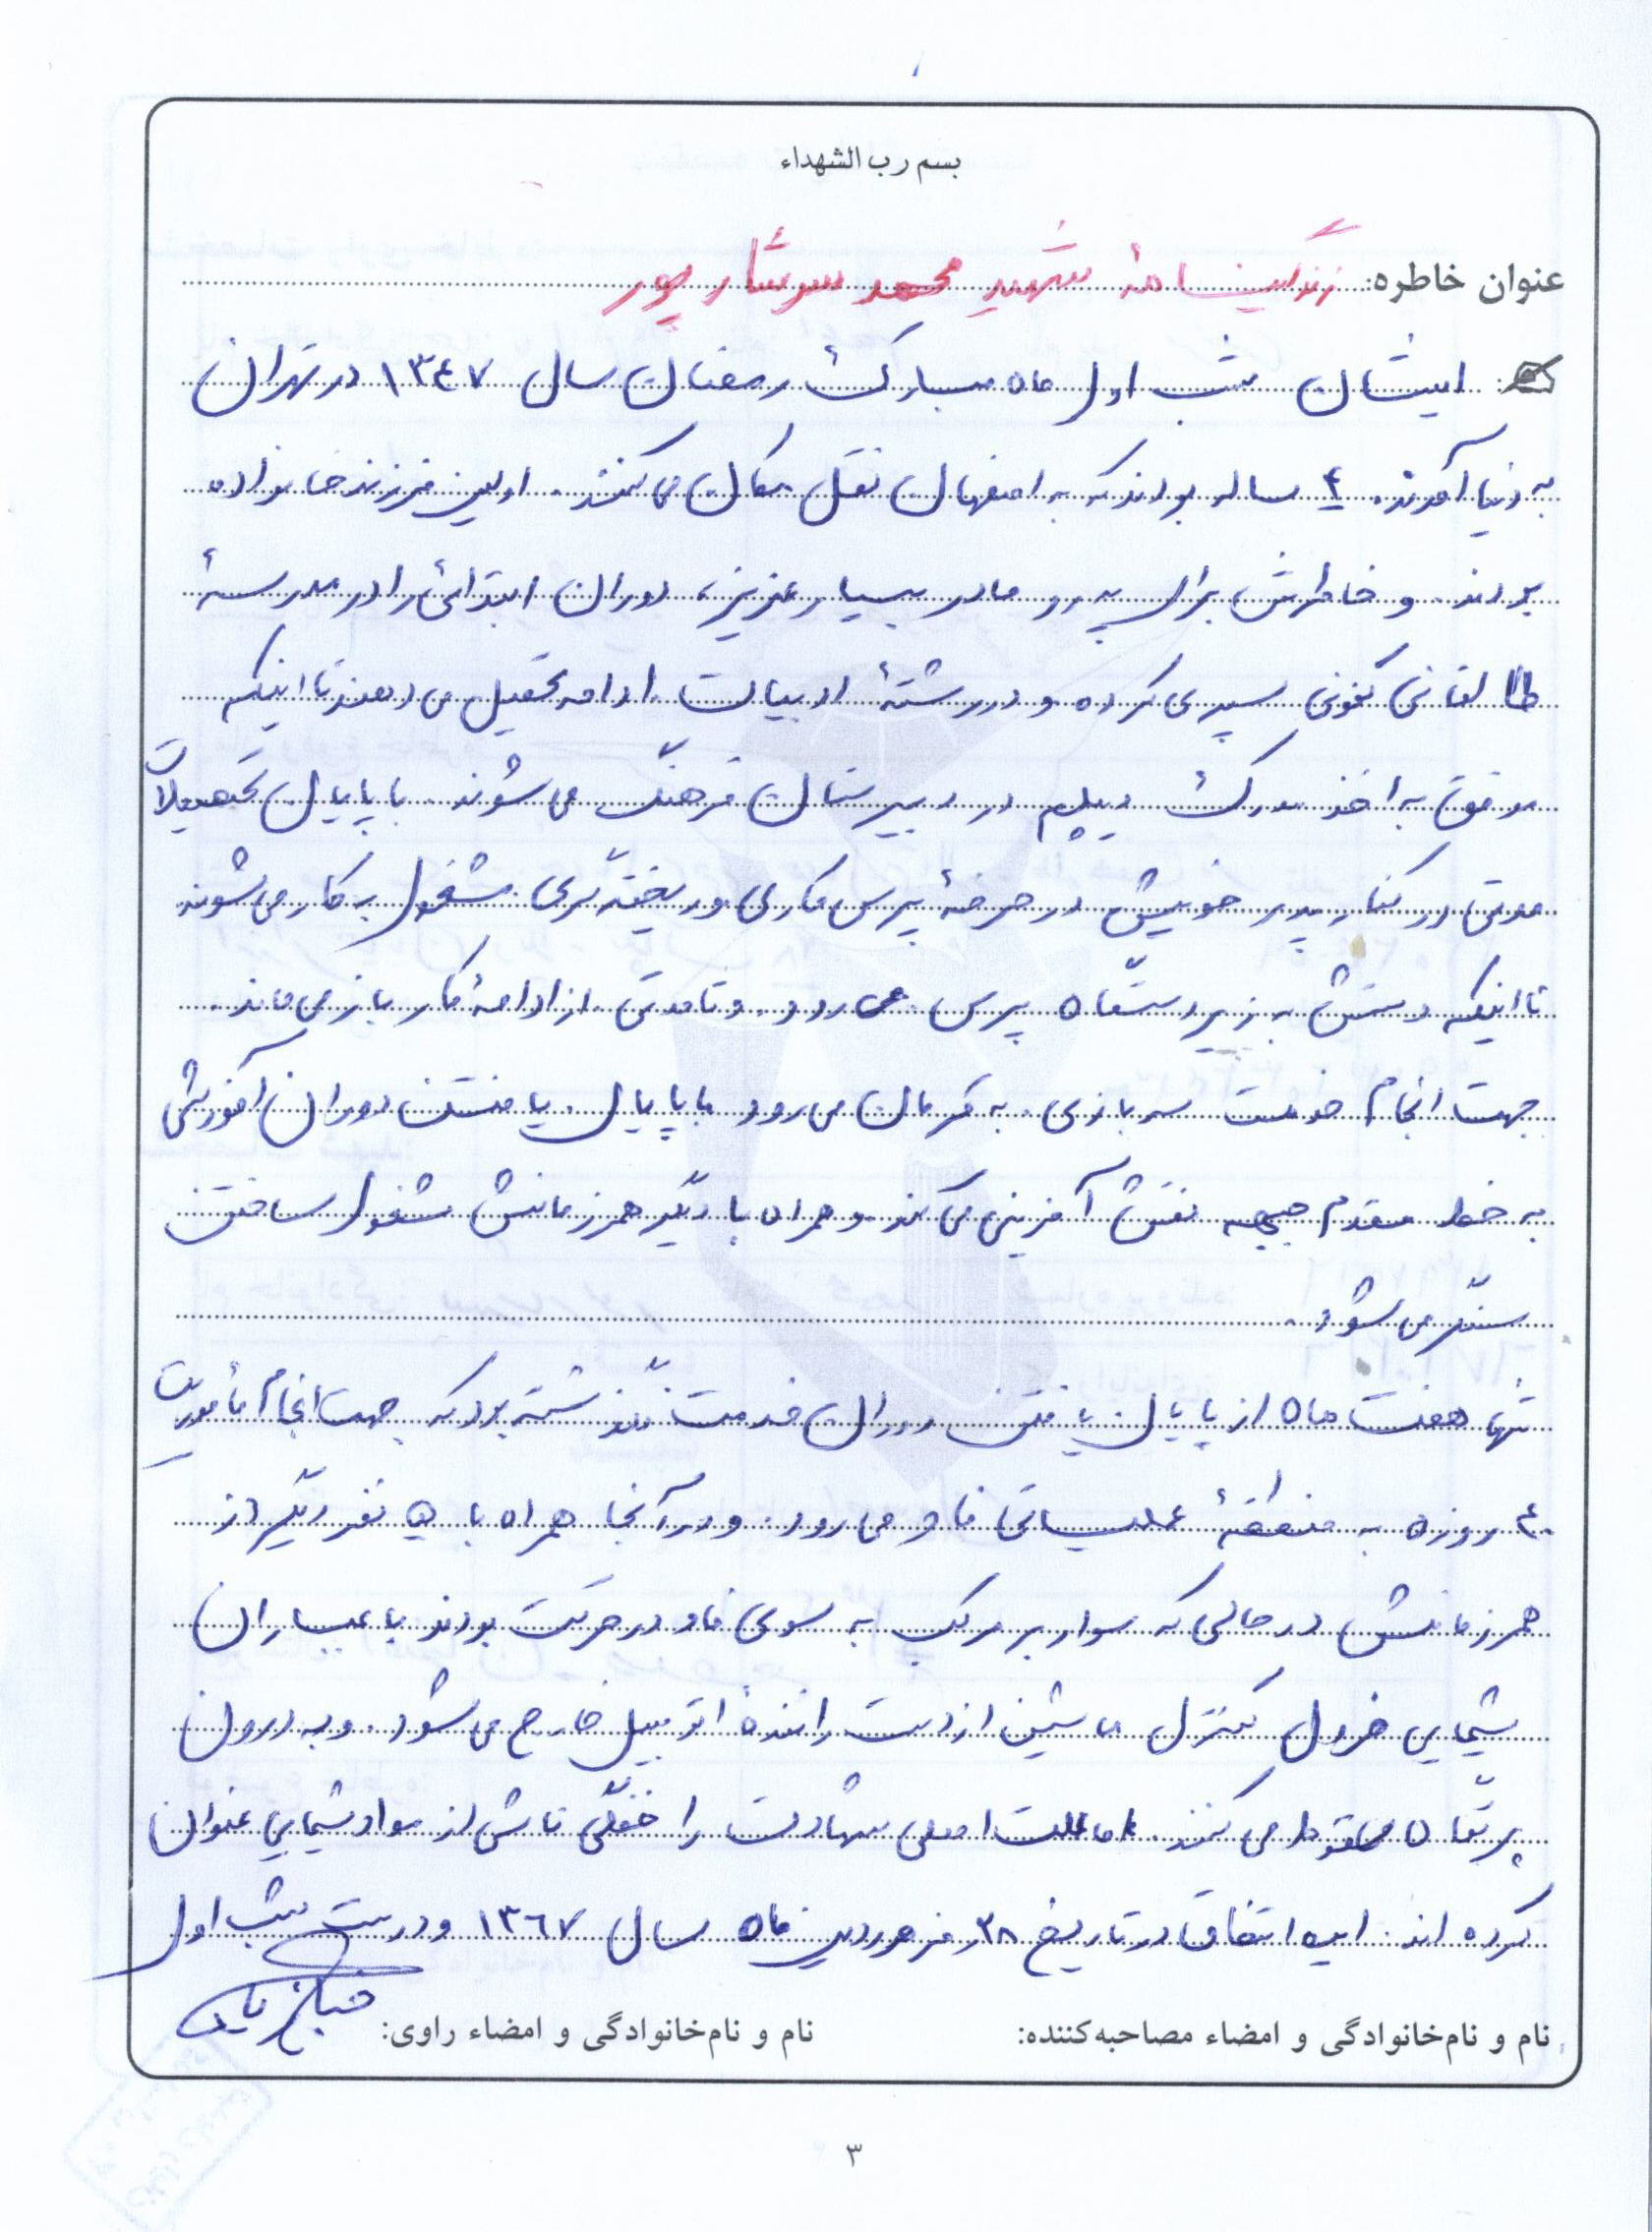 بسم رب الشهداء
عنوان خاطره: زندگینامهٔ شهید محمد سرشار پور
ایشان شب اول ماه مبارک رمضان سال ۱۳۴۷ در تهران
به دنیا آمدند. ۴ ساله بودند که به اصفهان نقل مکان می کنند. اولین فرزند خانواده
بودند. و خاطرش برای پدر و مادر بسیار عزیز، دوران ابتدائی را در مدرسهٔ
طالقانی کنونی سپری کرده و در رشتهٔ ادبیات ادامه تحصیل می دهند تا اینکه
موفق به اخذ مدرک دیپلم در دبیرستان فرهنگ می شوند. با پایان تحصیلات
مدتی در کنار پدر خویش در حرفهٔ پرس کاری و ریخته گری مشغول به کار می شوند
تا اینکه دستش به زیر دستگاه پرس می رود و تا مدتی از ادامهٔ کار باز می ماند.
جهت انجام خدمت سربازی به کرمان می رود با پایان یافتن دوران آموزشی
به خط مقدم جبهه نقش آفرینی می کند و همراه با دیگر همرزمانش مشغول ساختن
سنگر می شود.
تنها هفت ماه از پایان یافتن دوران خدمت نگذشته بود که جهت انجام مأموریت
۴۰ روزه به منطقهٔ عملیاتی فاو می رود. و در آنجا همراه با ۵ نفر دیگر از
همرزمانش در حالی که سوار بر مرکب به سوی فاو در حرکت بودند با بمباران
شیمایی خردل کنترل ماشین از دست رانندهٔ اتومبیل خارج می شود. و به درون
پرتگاه سقوط می کنند. اما علت اصلی شهادت را خفگی ناشی از مواد شیمایی عنوان
کرده اند. این اتفاق در تاریخ ۲۸ فروردین ماه سال ۱۳۶۷ و درست شب اول
نام و نام‌خانوادگی و امضاء مصاحبه‌کننده: نام و نام‌خانوادگی و امضاء راوی:
۳